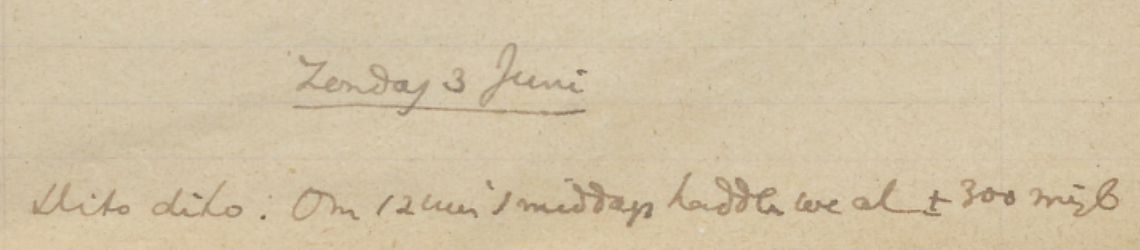 Zondag 3 Juni
Dito dito. Om 12 uur 's middags hadden we al ± 300 mijl